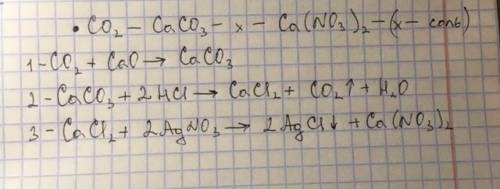 • CO₂ – CaCO₃ – x – Ca(NO₃)₂ – (x – соль)
1-CO₂ + CaO → CaCO₃
2-CaCO₃ + 2HCl → CaCl₂ + CO₂↑ + H₂O
3-CaCl₂ + 2AgNO₃ → 2AgCl↓ + Ca(NO₃)₂